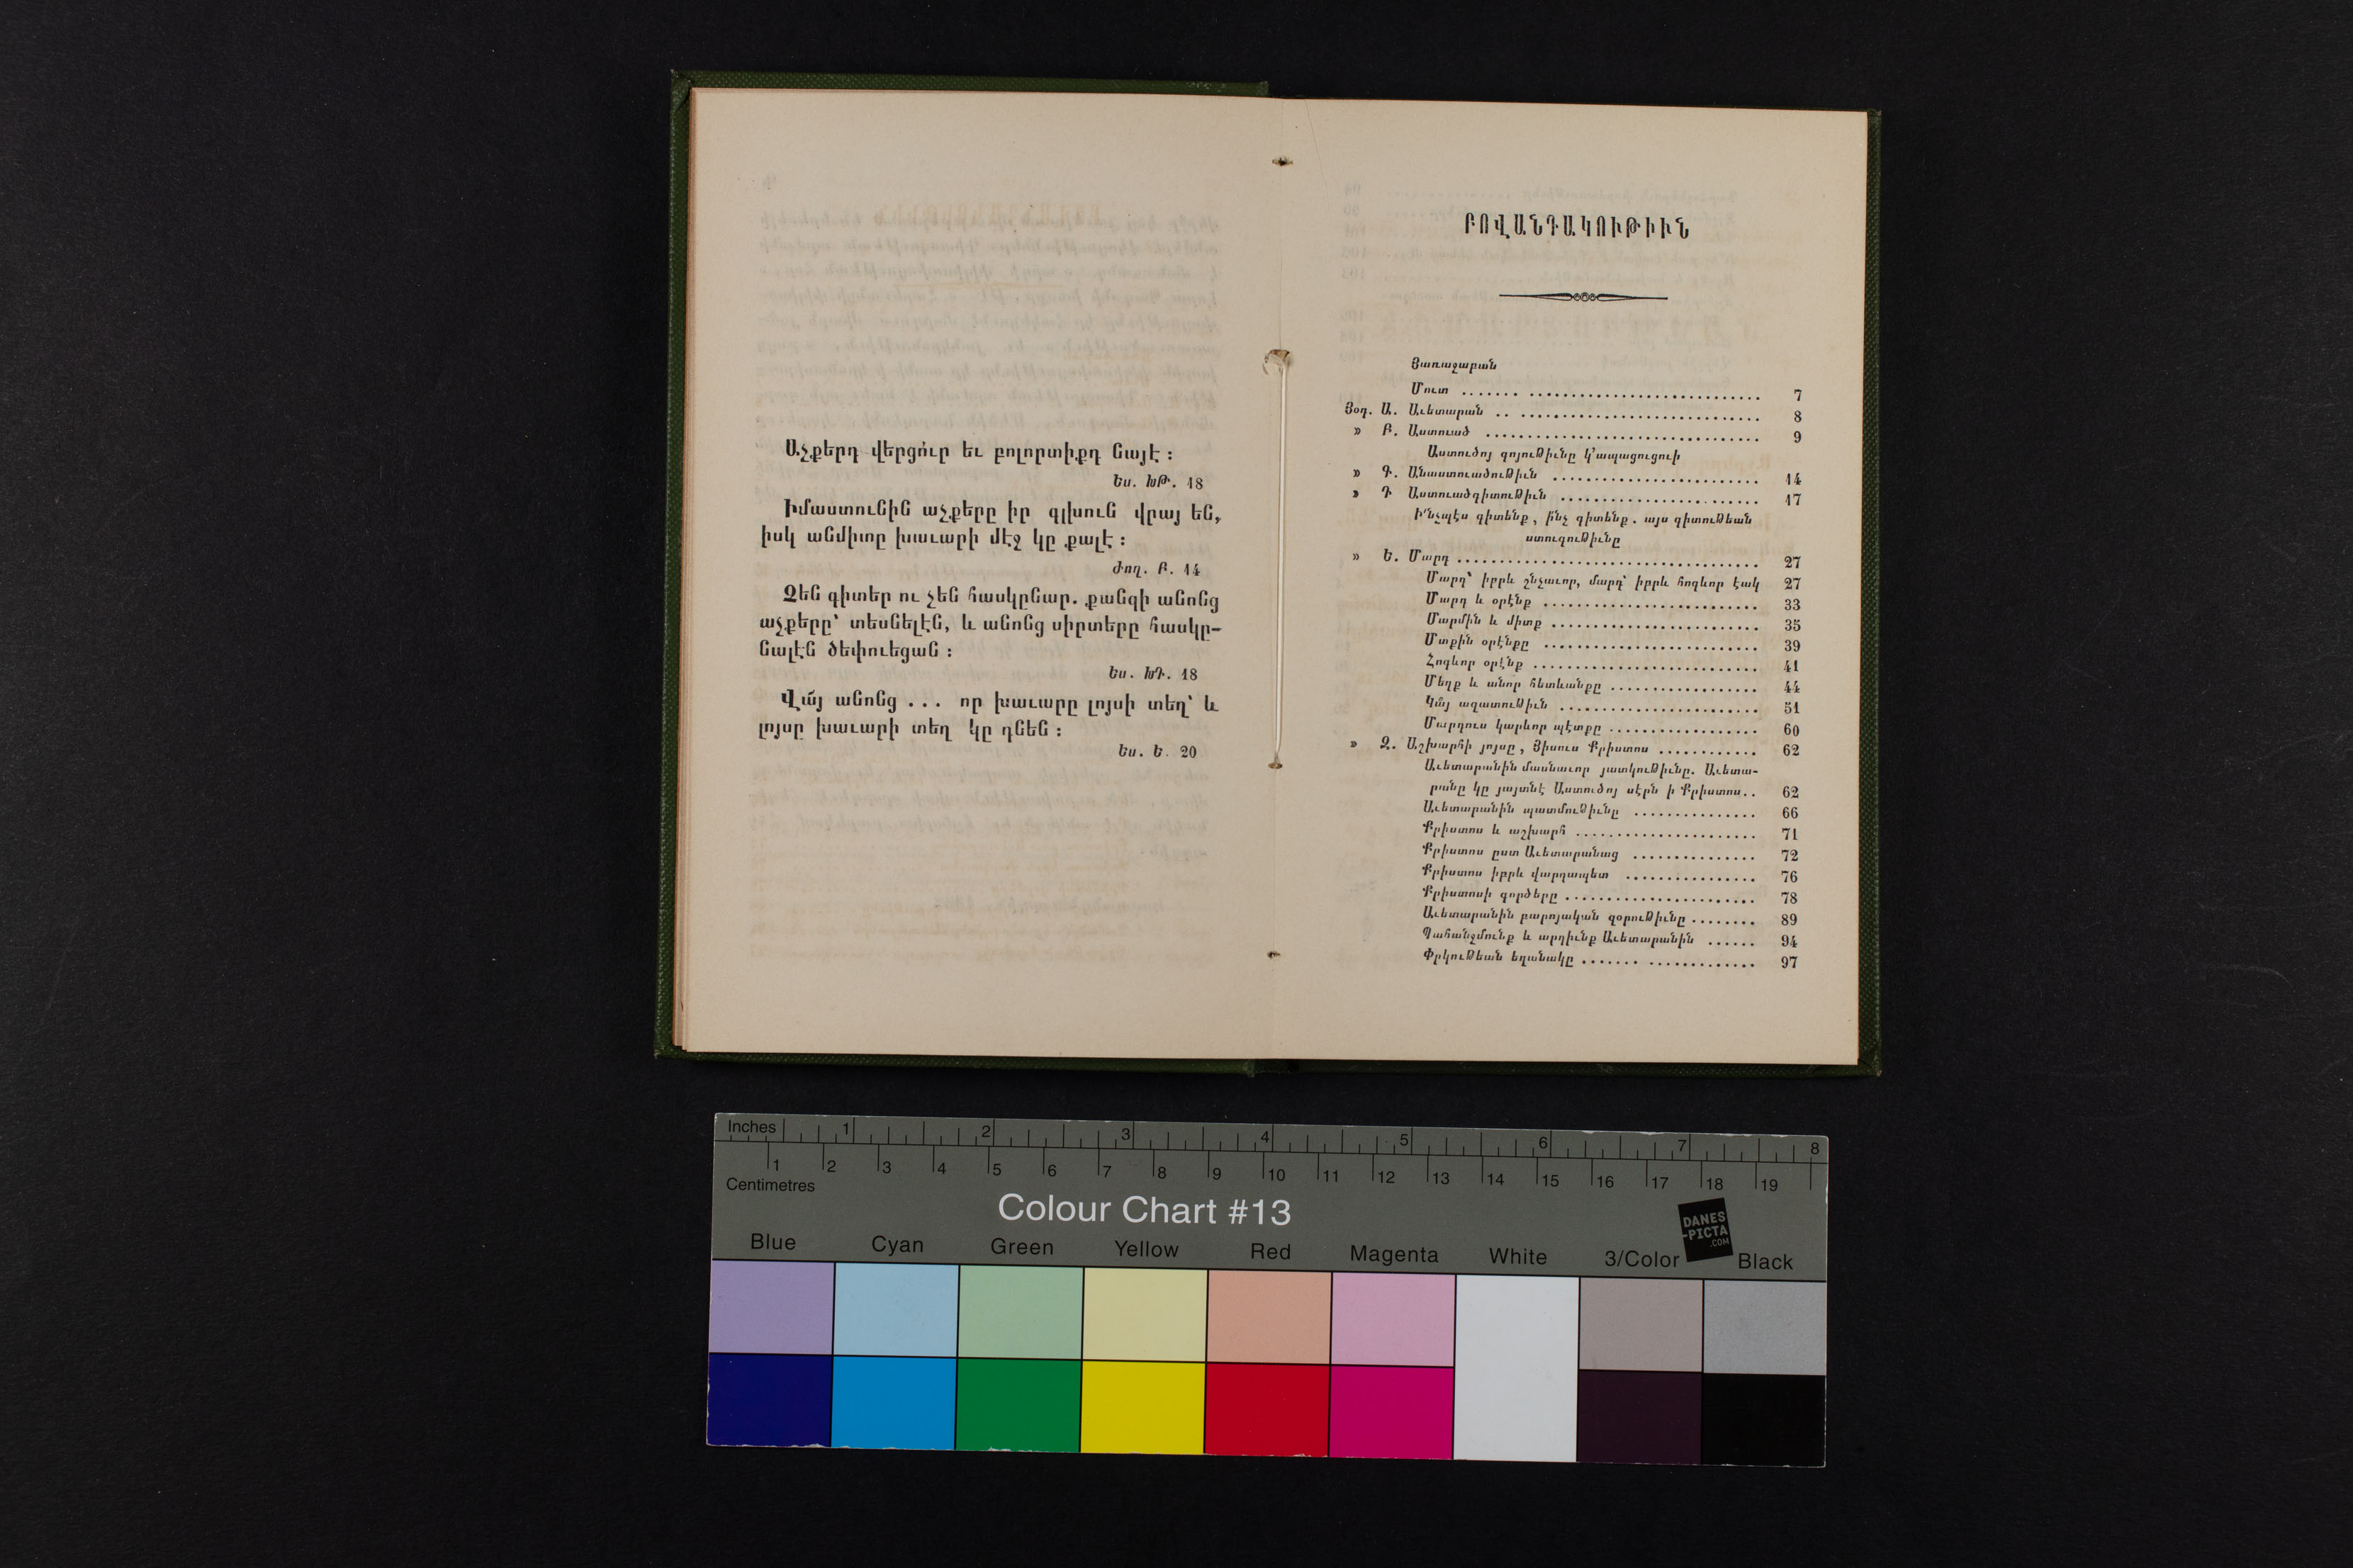 Աչքերդ վերցո՛ւր եւ բոլորտիքդ նայէ ։
Ես. ԽԹ. 18
Իմաստունին աչքերը իր գլխուն վրայ են,
իսկ անմիտը խաւարի մէջ կը քալէ ։
Ժող. Բ. 14
Չեն գիտեր ու չեն հասկընար. քանզի անոնց
աչքերը՝ տեսնելէն, և անոնց սիրտերը հասկը-
նալէն ծեփուեցան ։
Ես. ԽԴ. 18
Վա՜յ անոնց ... որ խաւարը լոյսի տեղ՝ և
լոյսը խաւարի տեղ կը դնեն ։
Ես. Ե. 20
ԲՈՎԱՆԴԱԿՈՒԹԻՒՆ
Յառաջաբան
Մուտ ....... ............................. 7
Յօդ. Ա. Աւետարան .. .............................. 8
» Բ. Աստուած .................................. 9
Աստուծոյ գոյութիւնը կ'ապացուցուի
» Գ. Անաստուածութիւն .......................... 14
» Դ Աստուածգիտութիւն ......................... 17
Ի՛նչպէս գիտենք, ի՛նչ գիտենք. այս գիտութեան
ստուգութիւնը
» Ե. Մարդ ...................................... 27
Մարդ՝ իբրև շնչաւոր, մարդ՝ իբրև հոգևոր էակ 27
Մարդ և օրէնք ........................... 33
Մարմին և միտք .......................... 35
Մտքին օրէնքը ........................... 39
Հոգևոր օրէնք ............................ 41
Մեղք և անոր հետևանքը .................. 44
Կա՛յ ազատութիւն ......................... 51
Մարդուս կարևոր պէտքը .................. 60
» Զ. Աշխարհի լոյսը, Յիսուս Քրիստոս ............ 62
Աւետարանին մասնաւոր յատկութիւնը. Աւետա-
րանը կը յայտնէ Աստուծոյ սէրն ի Քրիստոս.. 62
Աւետարանին պատմութիւնը ............... 66
Քրիստոս և աշխարհ ...................... 71
Քրիստոս ըստ Աւետարանաց ............... 72
Քրիստոս իբրև վարդապետ ................ 76
Քրիստոսի գործերը ....................... 78
Աւետարանին բարոյական զօրութիւնը ........ 89
Պահանջմունք և արդիւնք Աւետարանին ...... 94
Փրկութեան եղանակը ....... ............. 97
Inches 1 2 3 4 5 6 7 8
1 2 3 4 5 6 7 8 9 10 11 12 13 14 15 16 17 18 19
Centimetres
Colour Chart #13
DANES
-PICTA
.COM
Blue Cyan Green Yellow Red Magenta White 3/Color Black